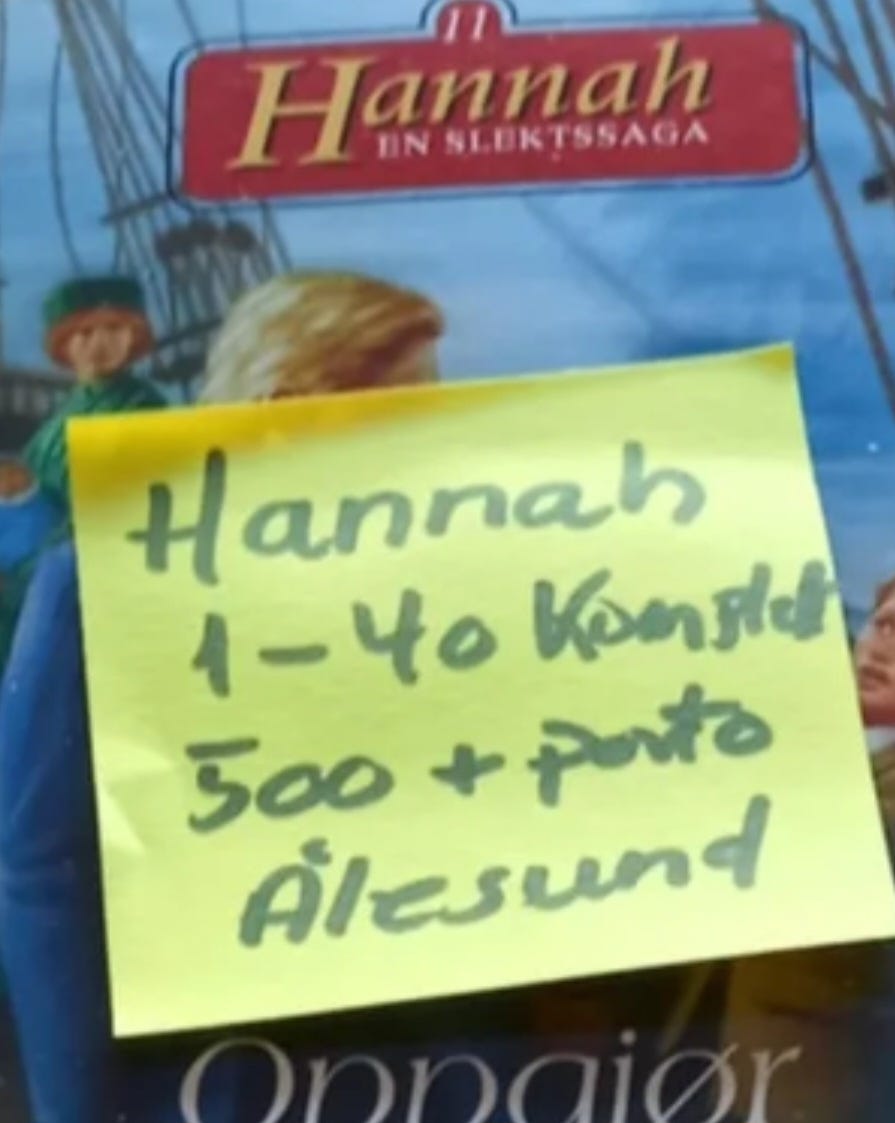 11
Hannah
EN SLEKTSSAGA
Hannah
1-40 Komplet
500 + porto
Ålesund
Oppgjør